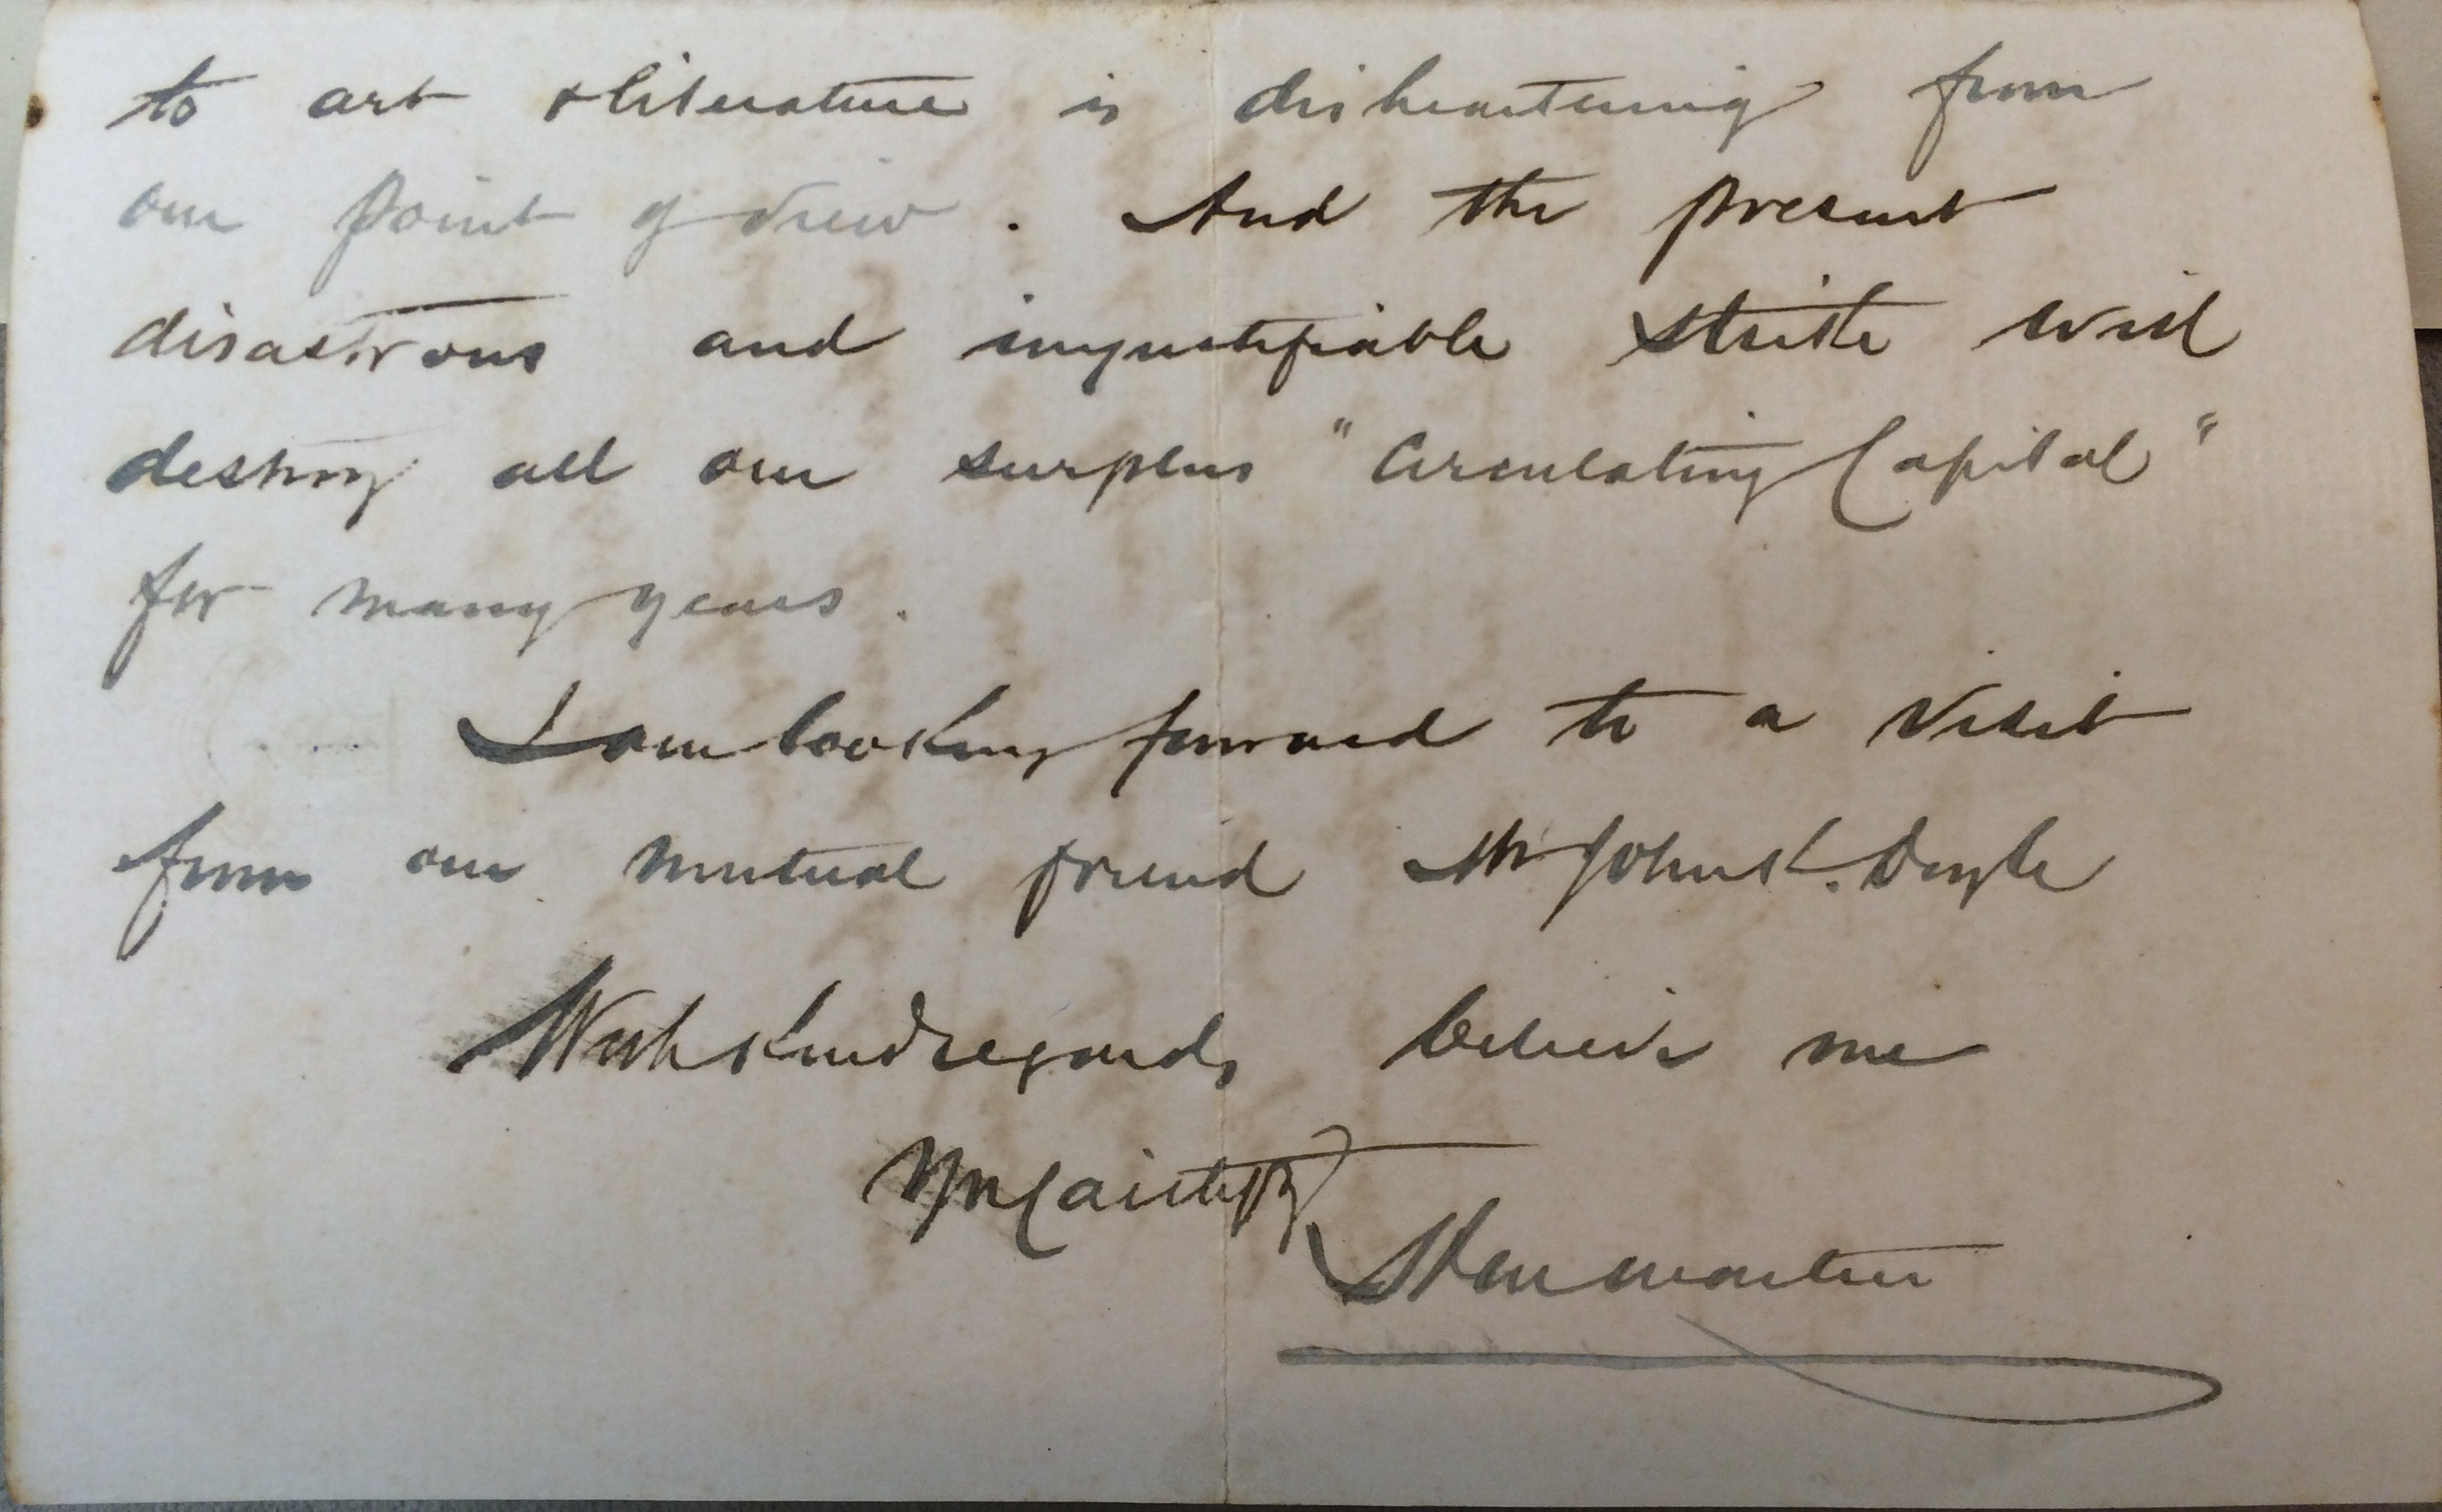 to art & literature is disheartening from
our point of view. And the present
disastrous and unjustifiable strike will
destroy all our surplus "Circulating Capital"
for many years.
I am looking forward to a visit
from our mutual friend Mr John K. Doyle
With kind regards believe me
Yrs faithfly